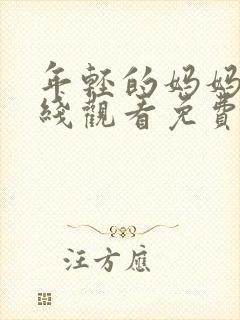 年輕的媽媽
綫觀看免費
汪方應